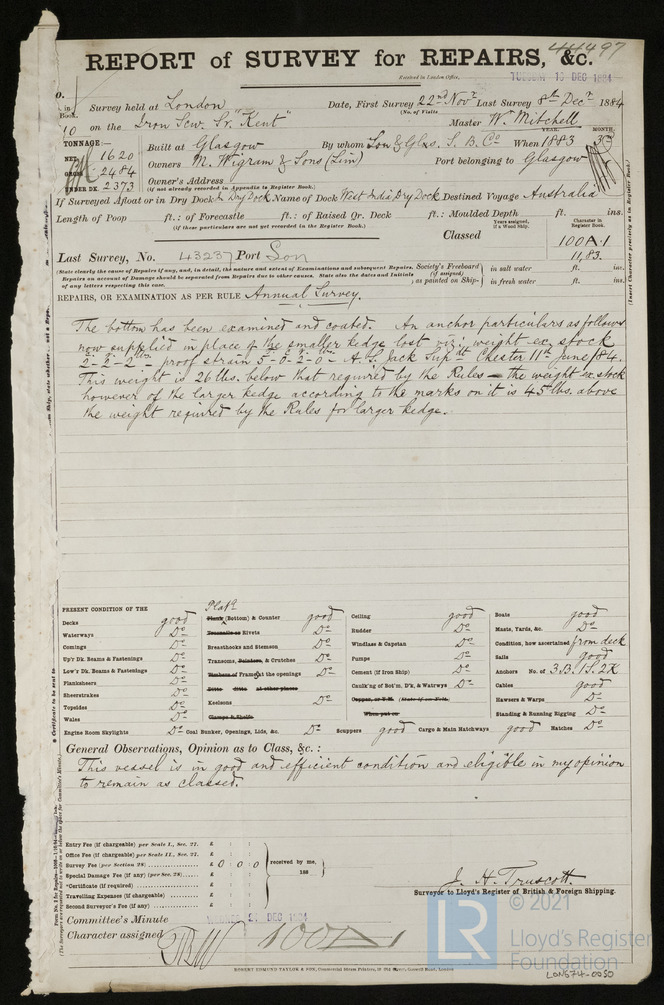 44497
REPORT of SURVEY for REPAIRS, &c.
Received in London Office, TUESDAY 16 DEC 1884
Survey held at London Date, First Survey 22nd Novr Last Survey 8th Decr 1884
(No. of Visits
in Book. 10 on the Iron Scw. Sr. "Kent" Master W. Mitchell
TONNAGE:— Built at Glasgow By whom Lon & Glas. S. B. Co When 1883
YEAR. MONTH.
NET 1620 Owners M. Wigram & Sons (Lim) Port belonging to Glasgow
GROSS 2484 Owner's Address
UNDER DK. 2373 (If not already recorded in Appendix to Register Book.)
If Surveyed Afloat or in Dry Dock In Dry Dock Name of Dock West India Dry Dock Destined Voyage Australia
Length of Poop ft.: of Forecastle ft.: of Raised Qr. Deck ft.: Moulded Depth ft. ins.
(If these particulars are not yet recorded in the Register Book.)
Years assigned, if a Wood Ship.
Character in Register Book.
Classed 100A1
11,83.
Last Survey, No. 43237 Port Lon
(State clearly the cause of Repairs if any, and, in detail, the nature and extent of Examinations and subsequent Repairs.
Repairs on account of Damage should be separated from Repairs due to other causes. State also the dates and Initials
of any letters respecting this case.
Society's Freeboard (if assigned) as painted on Ship— in salt water ft. ins.
in fresh water ft. ins.
REPAIRS, OR EXAMINATION AS PER RULE Annual Survey.
The bottom has been examined and coated. An anchor particulars as follows
now supplied in place of the smaller kedge lost viz: weight ex. stock
2-2-2 lbs — proof strain 5-0-2-0 — A. G. Jack Supdt Chester 11th June/84.
This weight is 26 lbs. below that required by the Rules — the weight ex. stock
however of the larger kedge according to the marks on it is 45 lbs. above
the weight required by the Rules for larger kedge.
PRESENT CONDITION OF THE
Decks good
Waterways Do
Comings Do
Up'r Dk. Beams & Fastenings Do
Low'r Dk. Beams & Fastenings Do
Planksheers Do
Sheerstrakes Do
Topsides Do
Wales Do
Engine Room Skylights Do
Plate
Plank (Bottom) & Counter good
Treenails or Rivets Do
Breasthooks and Stemson Do
Transoms, Pointers, & Crutches Do
Timbers of Frame at the openings Do
Ditto ditto at other places
Keelsons Do
Clamps & Shelfs
Coal Bunker, Openings, Lids, &c. Do
Ceiling good
Rudder Do
Windlass & Capstan Do
Pumps Do
Cement (if Iron Ship) Do
Caulk'ng of Bot'm, D'k, & Watrwys Do
When put on
Scuppers good
Cargo & Main Hatchways good
Boats good
Masts, Yards, &c. Do
Condition, how ascertained from deck
Sails good
Anchors No. of 3B.1S.2K
Cables good
Hawsers & Warps Do
Standing & Running Rigging Do
Hatches Do
General Observations, Opinion as to Class, &c.:
This vessel is in good and efficient condition and eligible in my opinion
to remain as classed.
Entry Fee (if chargeable) per Scale I., Sec. 27. £
Office Fee (if chargeable) per Scale II., Sec. 27. £
Survey Fee (per Section 28) £ 0 0 0
Special Damage Fee (if any) (per Sec. 28) £
*Certificate (if required) £
Travelling Expenses (if chargeable) £
Second Surveyor's Fee (if any) £
received by me,
188
J. H. Truscott
Surveyor to Lloyd's Register of British & Foreign Shipping.
Committee's Minute
Character assigned 100A1
ROBERT EDMUND TAYLOR & SON, Commercial Steam Printers, Goswell Road, London
LR
© 2021
Lloyd's Register
Foundation
LON574-0050
(Insert Character precisely as in Register Book.)